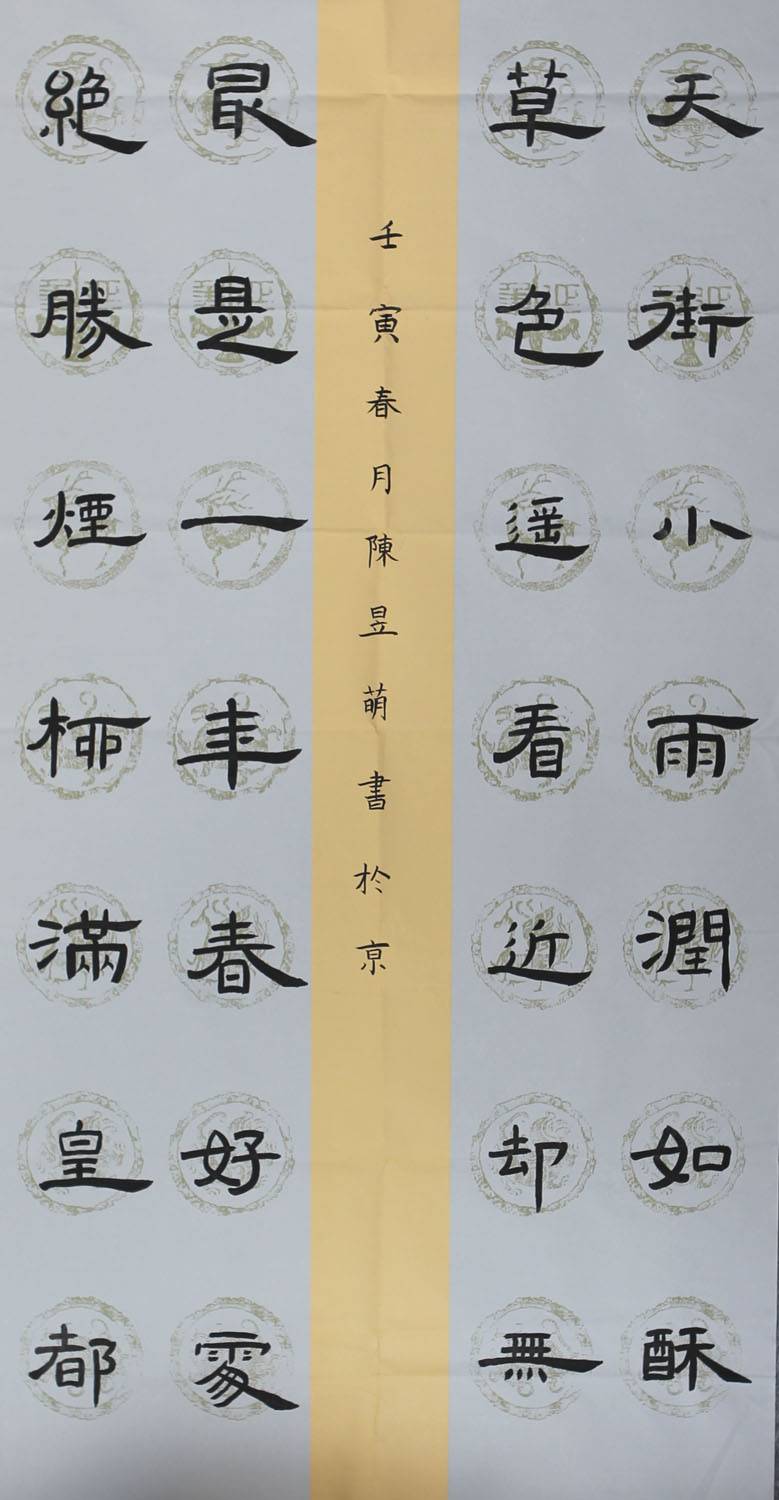 天街小雨潤如酥
草色遥看近却無
最是一年春好處
絶勝煙柳滿皇都
壬寅春月陳昱萌書於京